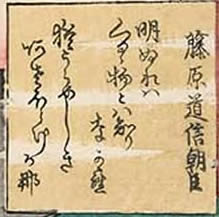 藤原道信朝臣
明ぬれハ
くるゝ物とハ知り
なから
猶うらめしき
あさほらけ哉